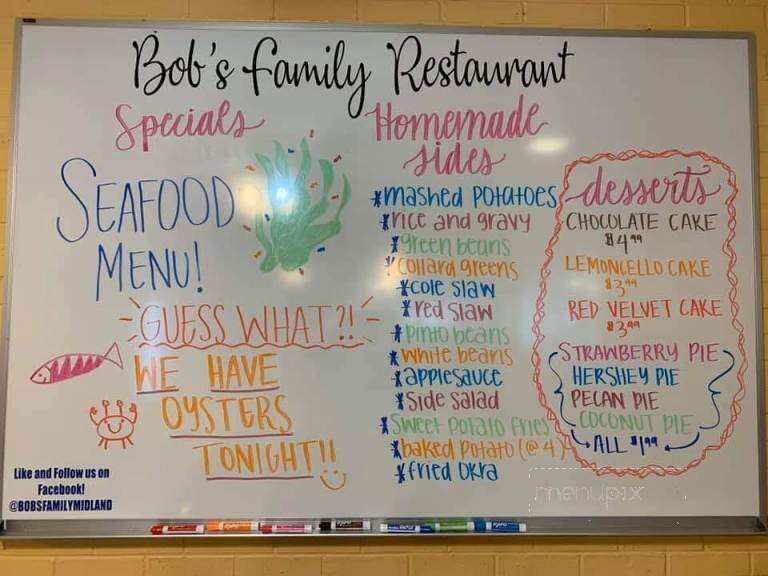 Bob's Family Restaurant
Specials
SEAFOOD
MENU!
GUESS WHAT?!
WE HAVE
OYSTERS
TONIGHT!!
Like and Follow us on
Facebook!
@BOBSFAMILYMIDLAND
Homemade
sides
*mashed potatoes
*rice and gravy
*green beans
*collard greens
*cole slaw
*red slaw
*pinto beans
*white beans
*applesauce
*side salad
*sweet potato fries
*baked potato (@ 4)
*fried okra
desserts
CHOCOLATE CAKE
$4.99
LEMONCELLO CAKE
$3.99
RED VELVET CAKE
$3.99
STRAWBERRY PIE
HERSHEY PIE
PECAN PIE
COCONUT PIE
ALL $1.99
menupix